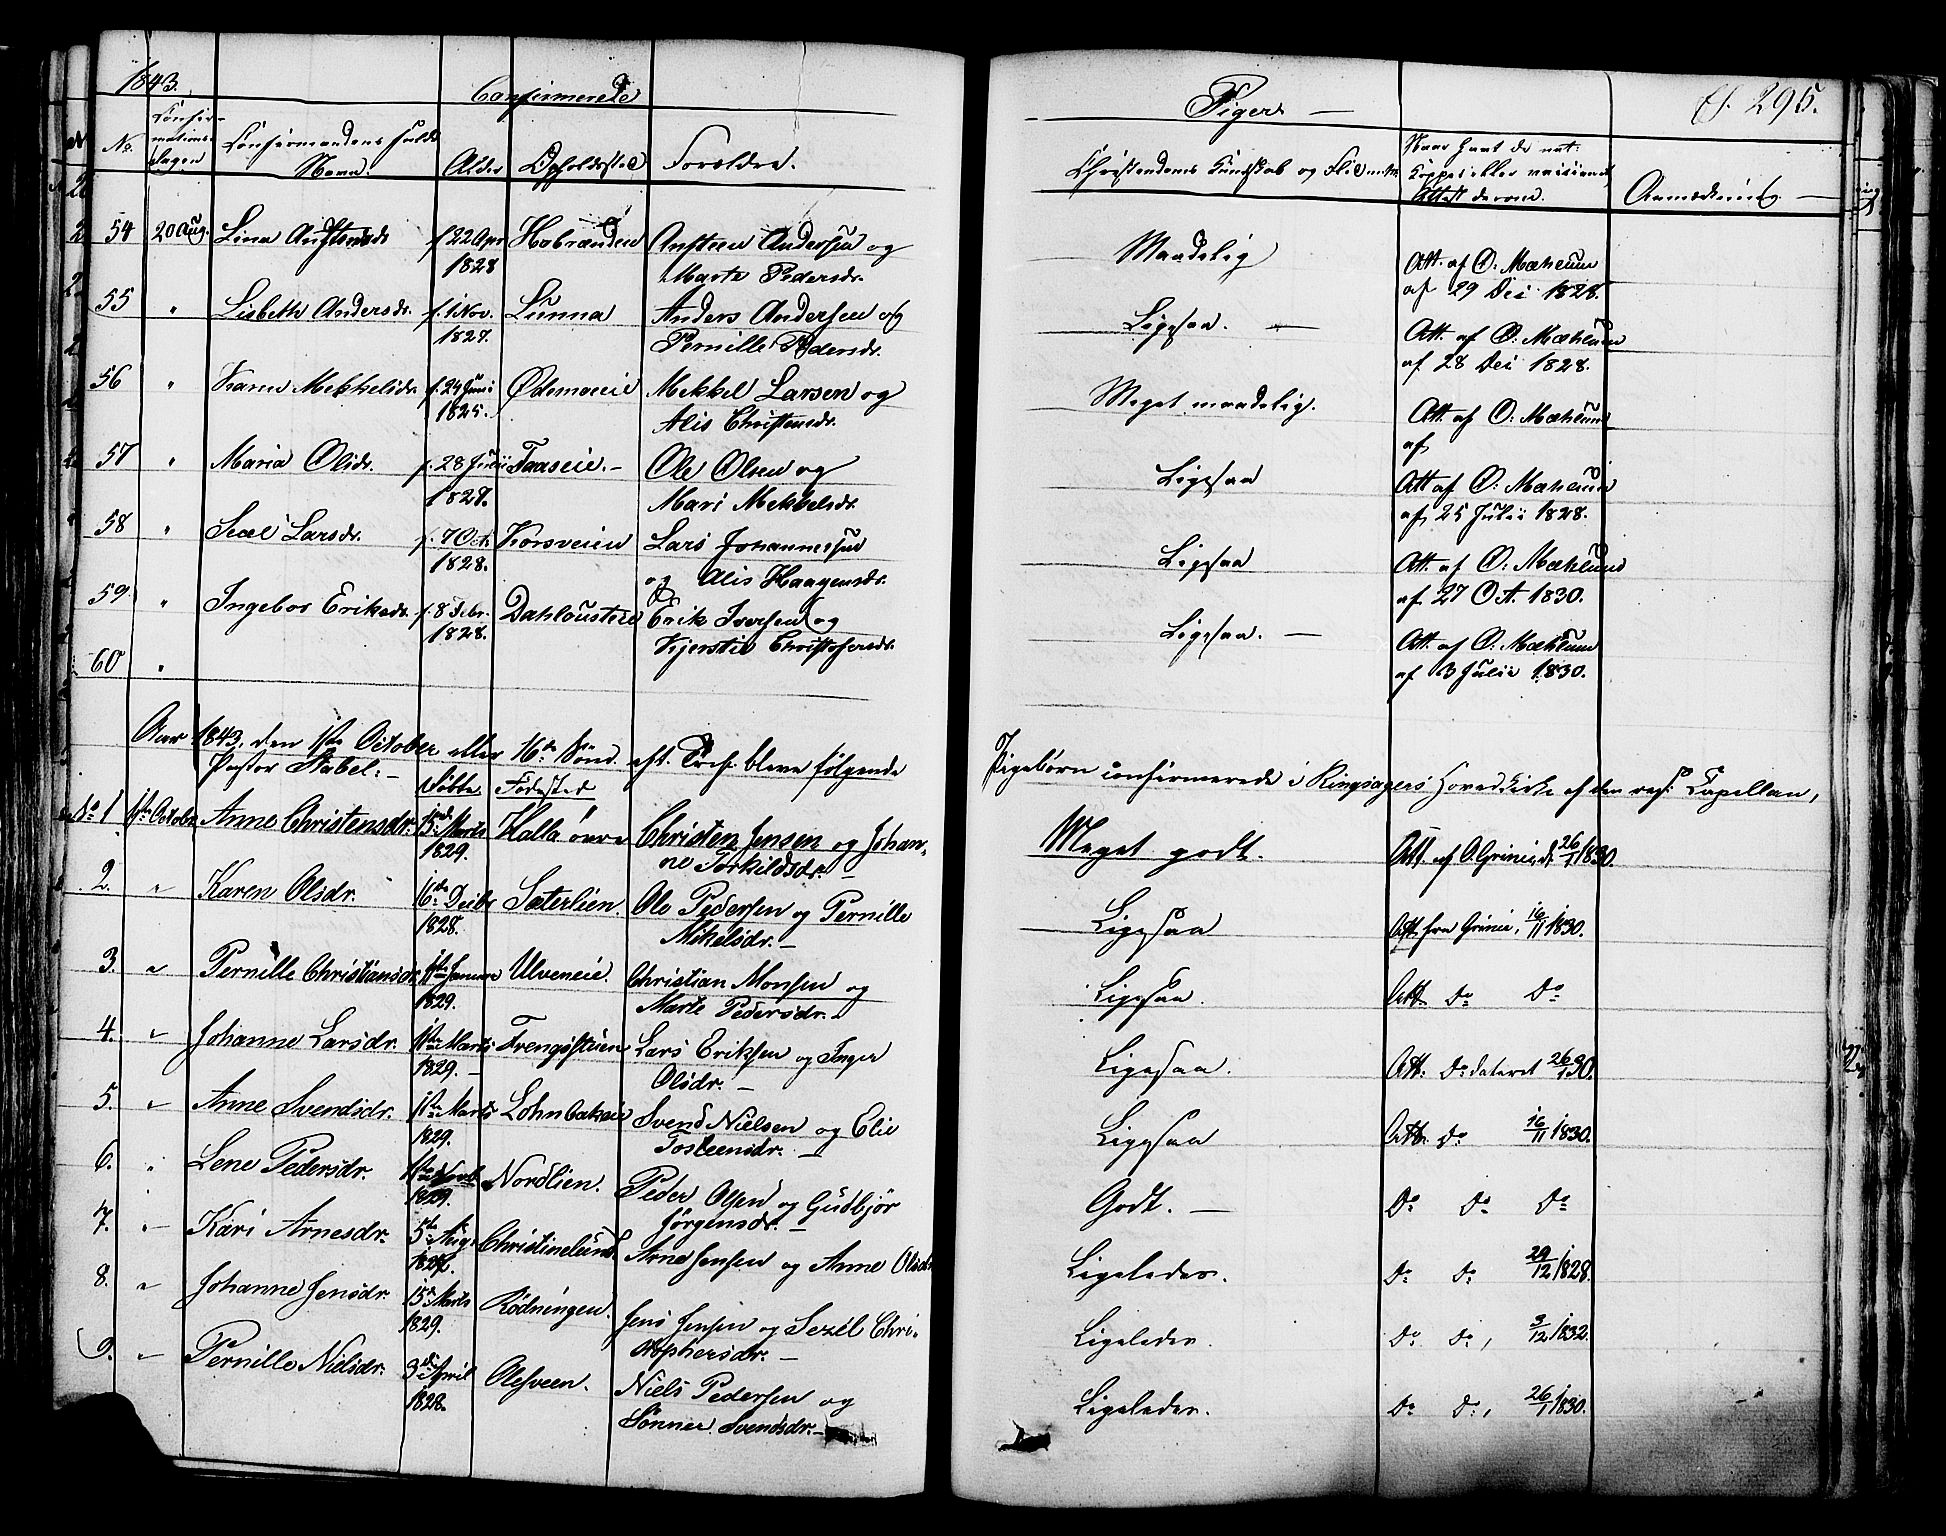 1843.
Confirmerede
Piger —
295.
No.
Confir-
mations-
dagen
Confirmandens fulde
Navn.
Alder
Opholdssted
Forældre.
Christendoms Kundskab og Flid m.m.
Naar havt de nat:
Kopper eller vaccineret,
Attest derom.
Anmærkning.
54 20 Aug. Lina f. 22 Apr Anders og Maadelig Att. af O: Mæhlum
1828 Marte Pedersdr. af 29 Dec 1828.
55 " Lisbeth Andersdr. f. 1 Nov. Lunna Anders Andersen og Ligesaa. — Att. af O: Mæhlum
1827. Pernille Pedersdr. af 28 Dec 1828.
56 " Karen Mekkelsdr. f. 24 Juni Ødemoeie Mekkel Larsen og Meget maadelig. Att. af O: Mæhlum
1825. Alis Christensdr. af
57 " Maria Olsdr. f. 28 Julii Faaseie. – Ole Olsen og Ligesaa Att af O: Mæhlum
1827. Mari Mekkelsdr. af 25 Julii 1828.
58 " Larsdr. f. 7 Oct. Korsveien Lars Johannessen Ligesaa Att. af O: Mæhlum
1828. og Alis Haagensdr. af 27 Oct. 1830.
59 " Ingebor Eriksdr. f. 8 Febr. Erik Iversen og Ligesaa. — Att. af O: Mæhlum
1828. Kjerstie Christofersdr. af 3 Julii 1830.
60 "
Aar 1843. den 1ste October eller 16de Sönd. eft. Tref. bleve følgende Pigebørn confirmerede i Ringsagers Hovedkirke af den res: Capellan,
Pastor Stabel: –
Døbte Fødested
No 1 1ste October Anne Christensdr. Marts Halla övre Christen Jensen og Johan- Meget godt. Att. af Grini, d. 26/1 1830.
1829. ne Torkildsdr. –
2. " Karen Olsdr. 16de Decbr Sæterlien. Ole Pedersen og Pernille Ligesaa Att. fra Grini, 16/11 1830.
1828. Mikelsdr. –
3. " Pernille Christiansdr. Januar Ulveneie. Christian Monsen og Ligesaa. Att. Do Do
1829. Marte Pedersdr. –
4. " Johanne Larsdr. 1ste Marts Lars Eriksen og Inger Ligesaa. Att. Do dateret 26/1 30.
1829. – Olsdr. –
5. " Anne Svendsdr. 1ste Marts Svend Nielsen og Elie Ligesaa Att. Do 16/11 1830.
1829. Tosteensdr. –
6. " Lene Pedersdr. Nordlien. Peder Olsen og Gudbjør Godt. — Do Do Do
1829. Jørgensdr. –
7. " Kari Arnesdr. 5te Aug. Christinelund. Arne Jensen og Anne Olsdr. Ligeledes. Do Do 29/12 1828.
8. " Johanne Jensdr. 15de Marts Rødningen. Jens Jensen og Sezél Chri- Ligeledes. Do Do, 3/12 1832.
1829. stophersdr. –
9. " Pernille Nielsdr. 3de April Olesveen. Niels Pedersen og Ligeledes. Do Do, 26/1 1830.
1828. Sønner Svendsdr. –